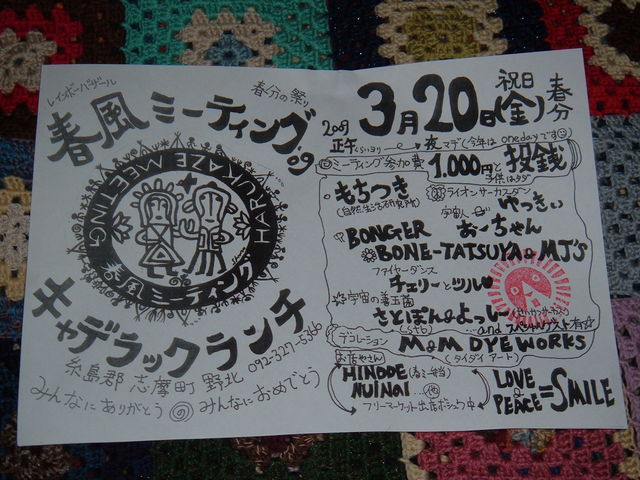 レインボーパザール
春分の祭り
春風ミーティング'09
HARUKAZE MEETING
春風ミーティング
キャデラックランチ
糸島郡 志摩町 野北 092-327-5366
みんなにありがとう みんなにおめでとう
3月20日(金)祝日 春分
2009 正午 夜マデ(今年は one dayです
ミーティング参加費 1.000円と投銭
子供はタダ
もちつき
(自然生活研究所)
ライオンサーカスダン
宇宙人 ゆっきぃ
BONGER おーちゃん
BONE-TATSUYA & MJ's
ファイヤーダンス
チェリーとツル
宇宙の善玉菌
さとぼん&よっしー
...and スペシャルゲスト有
デコレーション M&M DYE WORKS
(タイダイ アート)
お店やさん
HINODE
NUINAI ...他
フリーマーケット出店ボシュウ中
LOVE & PEACE = SMILE